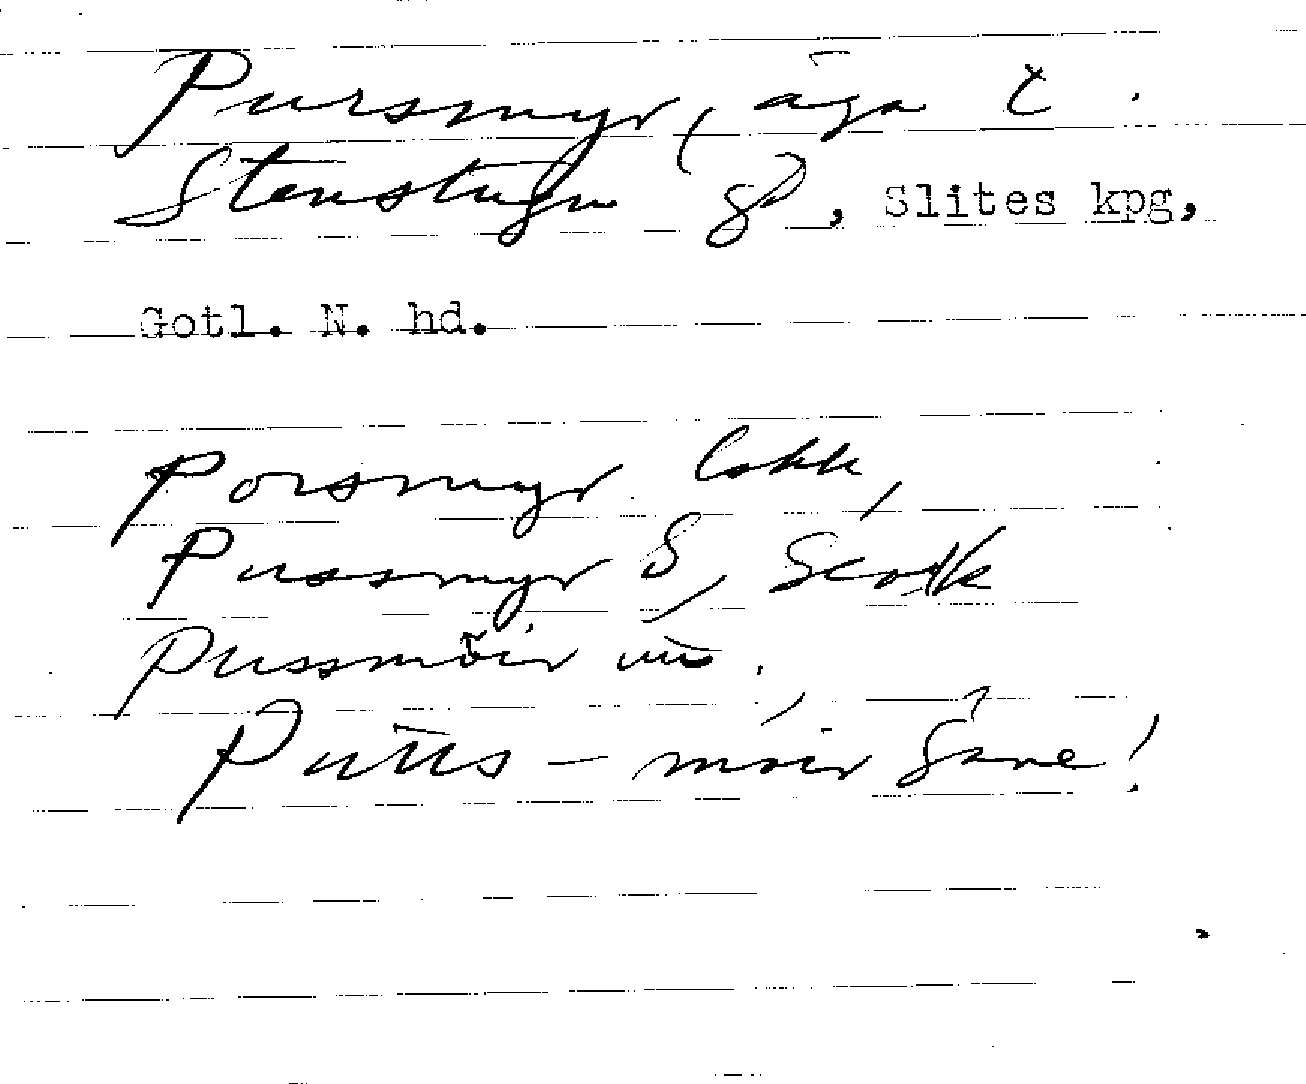 Pursmyr, äga t.
Stenstugu gd, Slites kpg,
Gotl. N. hd.
Porsmyr lokk,
Pussmyr S,
Pussmöir
Puus – moir Sane!